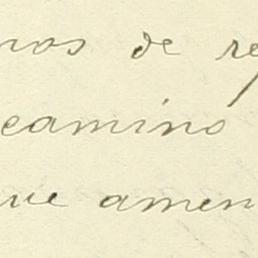 nos de re
camino
que amen